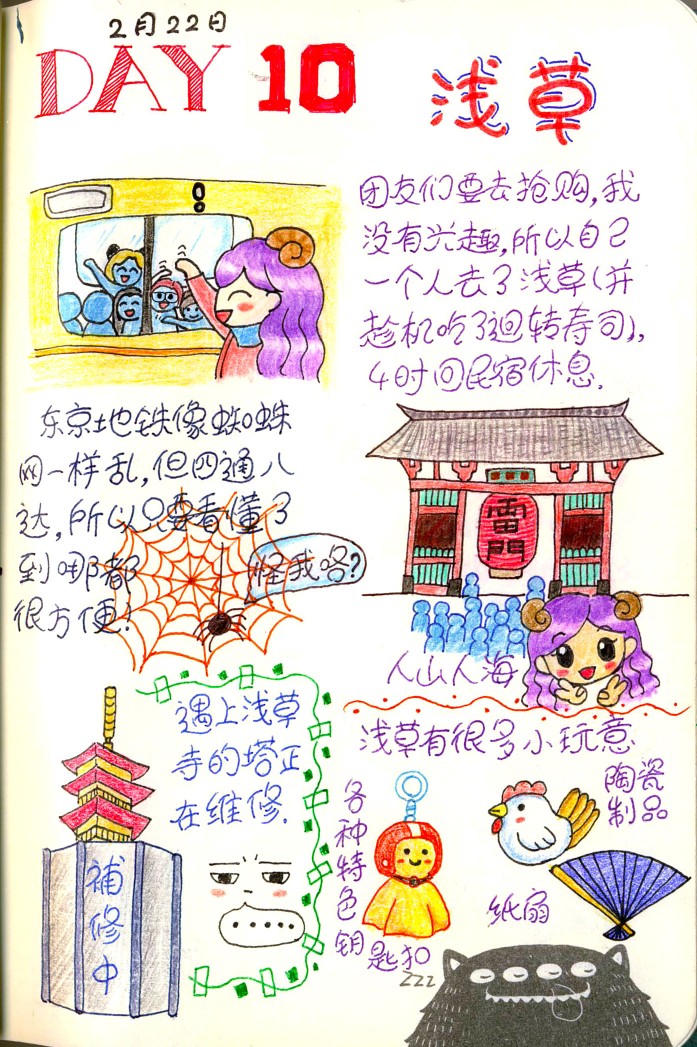 2月22日
DAY 10
浅草
团友们要去抢购,我
没有兴趣,所以自己
一个人去了浅草(并
趁机吃了迴转寿司),
4时回民宿休息.
东京地铁像蜘蛛
网一样乱,但四通八
达,所以只要看懂了
到哪都
很方便!
怪我咯?
雷門
人山人海
遇上浅草
寺的塔正
在维修.
補修中
浅草有很多小玩意
各种特色钥匙扣
陶瓷
制品
纸扇
zzz